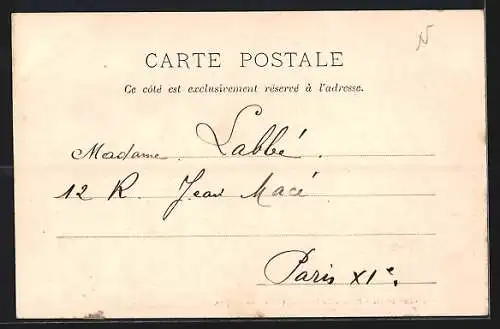 CARTE POSTALE
Ce côté est exclusivement réservé à l'adresse.
Madame Labbé.
12 R. Jean Macé
Paris XIe.